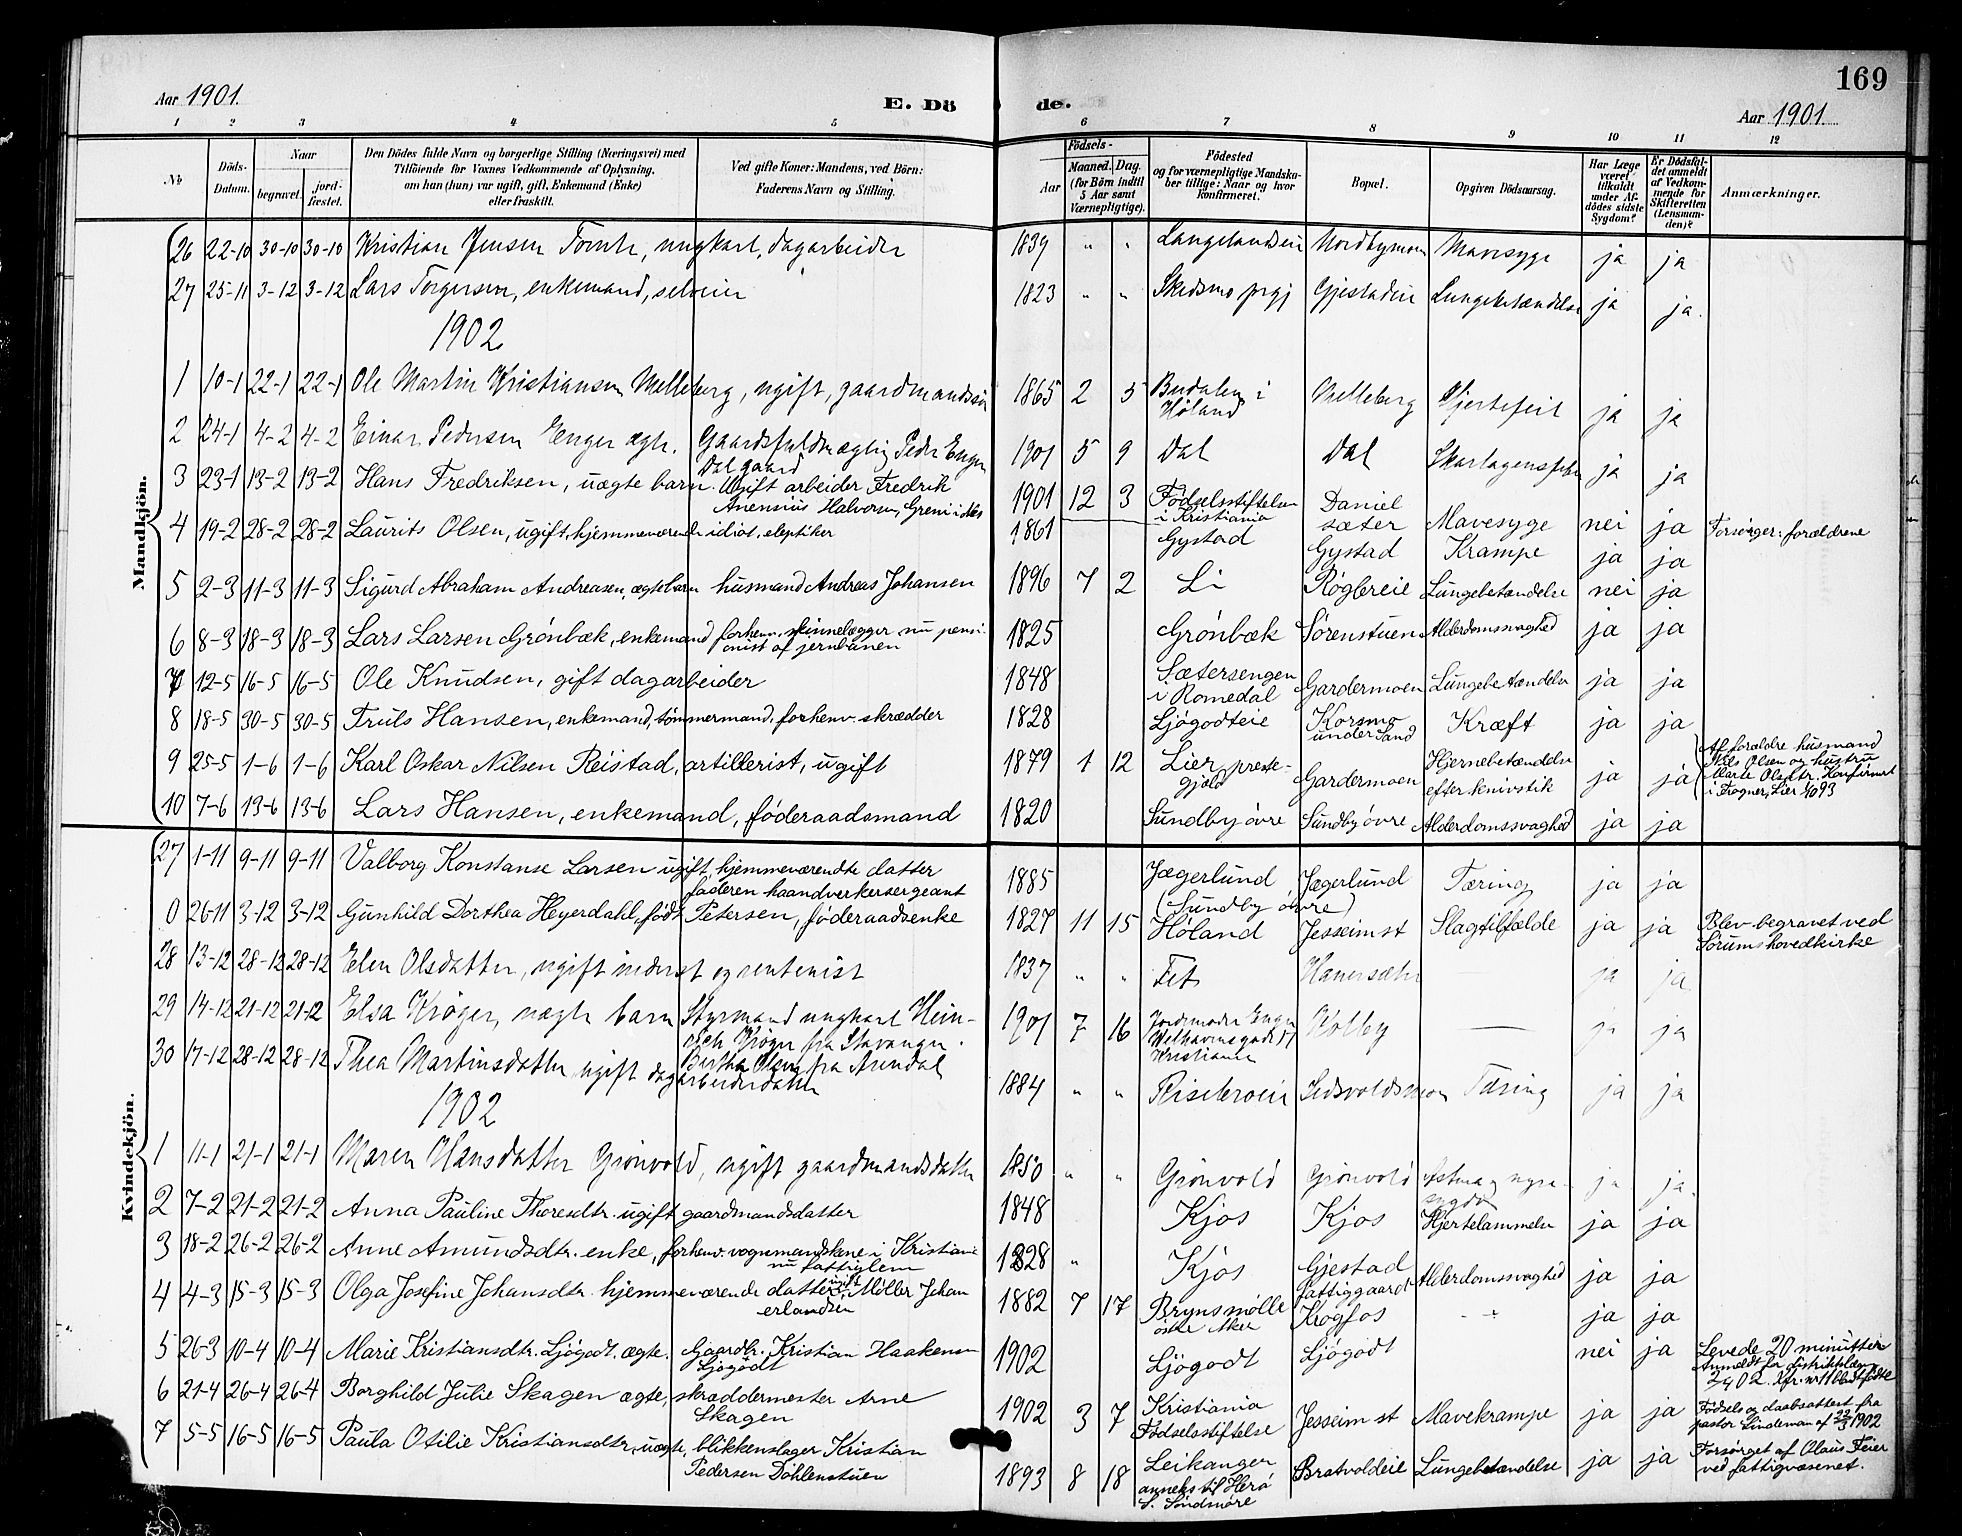 169
Aar 1901. E. Dö de. Aar 1901
1 2 3 4 5 6 7 8 9 10 11 12
No
Döds-Datum.
Naar
begravet.
jord-fæstet.
Den Dödes fulde Navn og borgerlige Stilling (Næringsvei) med
Tilföiende for Voxnes Vedkommende af Oplysning,
om han (hun) var ugift, gift, Enkemand (Enke)
eller fraskilt.
Ved gifte Koner: Mandens, ved Börn:
Faderens Navn og Stilling.
Födsels-
Aar
Maaned. Dag.
(for Börn indtil
5 Aar samt
Værnepligtige).
Födested
og for værnepligtige Mandska-
ber tillige: Naar og hvor
konfirmeret.
Bopæl.
Opgiven Dödsaarsag.
Har Læge
været
tilkaldt
under Af-
dödes sidste
Sygdom?
Er Dödsfal-
det anmeldt
af Vedkom-
mende for
Skifteretten
(Lensman-
den)?
Anmærkninger.
Mandkjön.
26 22-10 30-10 30-10 Kristian Jensen Tomte, ungkarl, dagarbeider 1839 " " Langelandseie Nordbymoen Mavesyge ja ja
27 25-11 3-12 3-12 Lars Torgersen, enkemand, selveier 1823 " " Skedsmo prgj Gjestadeie Lungebetændelse ja ja.
1902
1 10-1 22-1 22-1 Ole Martin Kristiansen Melleberg, ugift, gaardmandssön 1865 2 5 Burdalen i Höland Melleberg Hjertefeil ja ja
2 24-1 4-2 4-2 Einar Pedersen Enger ægte. Gaardsfuldmægtig Peder Enger Dal gaard 1901 5 9 Dal Dal Skarlagensfeber ja ja
3 23-1 13-2 13-2 Hans Fredriksen, uægte barn. Ugift arbeider Fredrik
Anensius Halvorsen, Greni i Næs 1901 12 3 Födselsstiftelsen i Kristiania Daniel sæter Mavesyge nei ja Forsörger: forældrene
4 19-2 28-2 28-2 Laurits Olsen, ugift, hjemmeværende idiot, eleptiker 1861 Gystad Gystad Krampe ja ja
5 2-3 11-3 11-3 Sigurd Abraham Andreasen, ægte barn husmand Andreas Johansen 1896 7 2 Li Rögbreie Lungebetændelse nei ja
6 8-3 18-3 18-3 Lars Larsen Grönbæk, enkemand forhenv. skinnelægger nu pensi-
onist af jernbanen 1825 Grönbæk Sörenstuen Alderdomssvaghed ja ja
7 12-5 16-5 16-5 Ole Knudsen, gift dagarbeider 1848 Sætersengen i Romedal Gardermoen Lungebetændelse ja ja
8 18-5 30-5 30-5 Truls Hansen, enkemand, tömmermand, forhenv. skrædder 1828 Ljögodteie Korsmo under Sand Kræft ja ja
9 25-5 1-6 1-6 Karl Oskar Nilsen Reistad, artillerist, ugift 1879 1 12 Lier præste-gjeld Gardermoen Hjernebetændelse efter knivstik ja ja Af forældre husmand
Nils Olsen og hustru
Marte Olsdtr. Konfirmert
i Frogner, Lier 1/10 93
10 7-6 13-6 13-6 Lars Hansen, enkemand, föderaadsmand 1820 Sundby övre Sundby övre Alderdomssvaghed ja ja
Kvindekjön.
27 1-11 9-11 9-11 Valborg Konstanse Larsen ugift, hjemmeværende datter
faderen haandverkersergeant 1885 Jægerlund (Sundby övre) Jægerlund Tæring ja ja
0 26-11 3-12 3-12 Gunhild Dorthea Heyerdahl, födt Petersen, föderaadsenke 1827 11 15 Höland Jessheim st Slagtilfælde ja ja Blev begravet ved
Sörums hovedkirke
28 13-12 28-12 28-12 Elen Olsdatter, ugift inderst og rentenist 1837 " " Fet Hanersæter ja ja.
29 14-12 21-12 21-12 Elsa Kröger, uægte barn Styrmand ungkarl Hein-
rich Kröger fra Stavanger.
Bertha Olsen fra Arendal 1901 7 16 Jordemoder Enger
Welhavensgade 17
Kristiania Kolby — ja ja
30 17-12 28-12 28-12 Thea Martinsdatter ugift dagarbeiderdatter 1884 " " Risebroeie Sedsvoldsmoen Tæring ja ja
1902
1 11-1 21-1 21-1 Maren Hansdatter Grönvold, ugift gaardmandsdatter 1850 " " Grönvold Grönvold Astma og nyre-sygdom ja ja.
2 7-2 21-2 21-2 Anna Pauline Thoresdtr. ugift gaardmandsdatter 1848 Kjos Kjos Hjertelammelse ja ja
3 18-2 26-2 26-2 Anne Amundsdtr. enke, forhenv. vognmandskone i Kristiania
nu fattiglem 1828 " Kjos Gjestad fattiggaard Alderdomssvaghed ja ja
4 4-3 15-3 15-3 Olga Josefine Johansdtr. hjemmeværende datter ugift Möller Johan
Erlandsen 1882 7 17 Brynsmölle östre Aker Krogfos " ja ja
5 26-3 10-4 10-4 Marie Kristiansdtr. Ljögodt. ægte. Gaardbr. Kristian Haakensen
Ljögodt 1902 Ljögodt Ljögodt nei ja Levede 20 minutter
Anmeldt for distriktslægen
6 21-4 26-4 26-4 Borghild Julie Skagen ægte, skræddermester Arne
Skagen 1902 3 7 Kristiania Födselsstiftelse Jessheim st Mavekrampe ja ja Födsels og daabsattest fra
pastor Lindeman af 22/4 1902
7 5-5 16-5 16-5 Paula Otilie Kristiansdtr. uægte, blikkenslager Kristian
Pedersen Döhlenstuen 1893 8 18 Leikanger
anneks til Herö
S. Söndmöre Bratvoldeie Lungebetændelse ja ja Forsörget af Olaus Feier
ved fattigvæsenet.